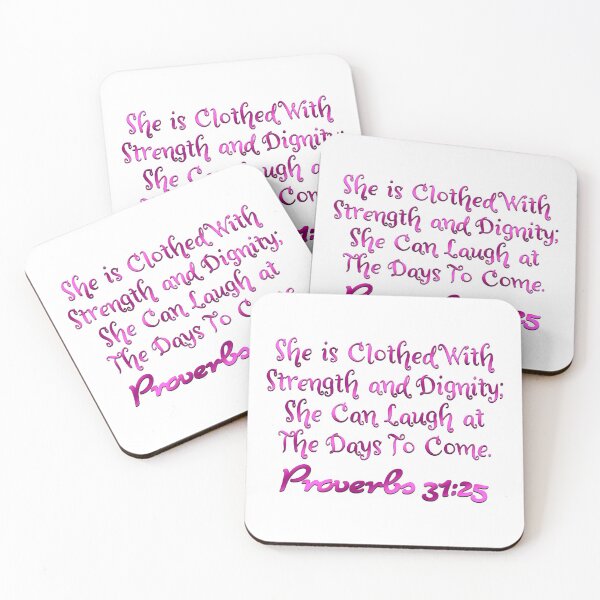 She is Clothed With
Strength and Dignity;
She Can Laugh
Come
She is Clothed With
Strength and Dignity;
She Can Laugh at
The Days To Come.
Proverbs
She is Clothed With
Strength and Dignity;
She Can Laugh at
The Days To Come
Proverbs
She is Clothed With
Strength and Dignity;
She Can Laugh at
The Days To Come.
Proverbs 31:25